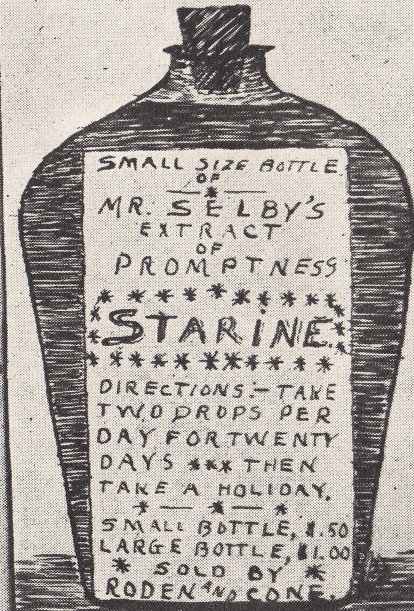 SMALL SIZE BOTTLE
OF
MR. SELBY'S
EXTRACT
OF
PROMPTNESS
STARINE
DIRECTIONS:- TAKE
TWO DROPS PER
DAY FOR TWENTY
DAYS *** THEN
TAKE A HOLIDAY.
SMALL BOTTLE, $.50
LARGE BOTTLE, $1.00
* SOLD BY *
RODEN AND CONE.